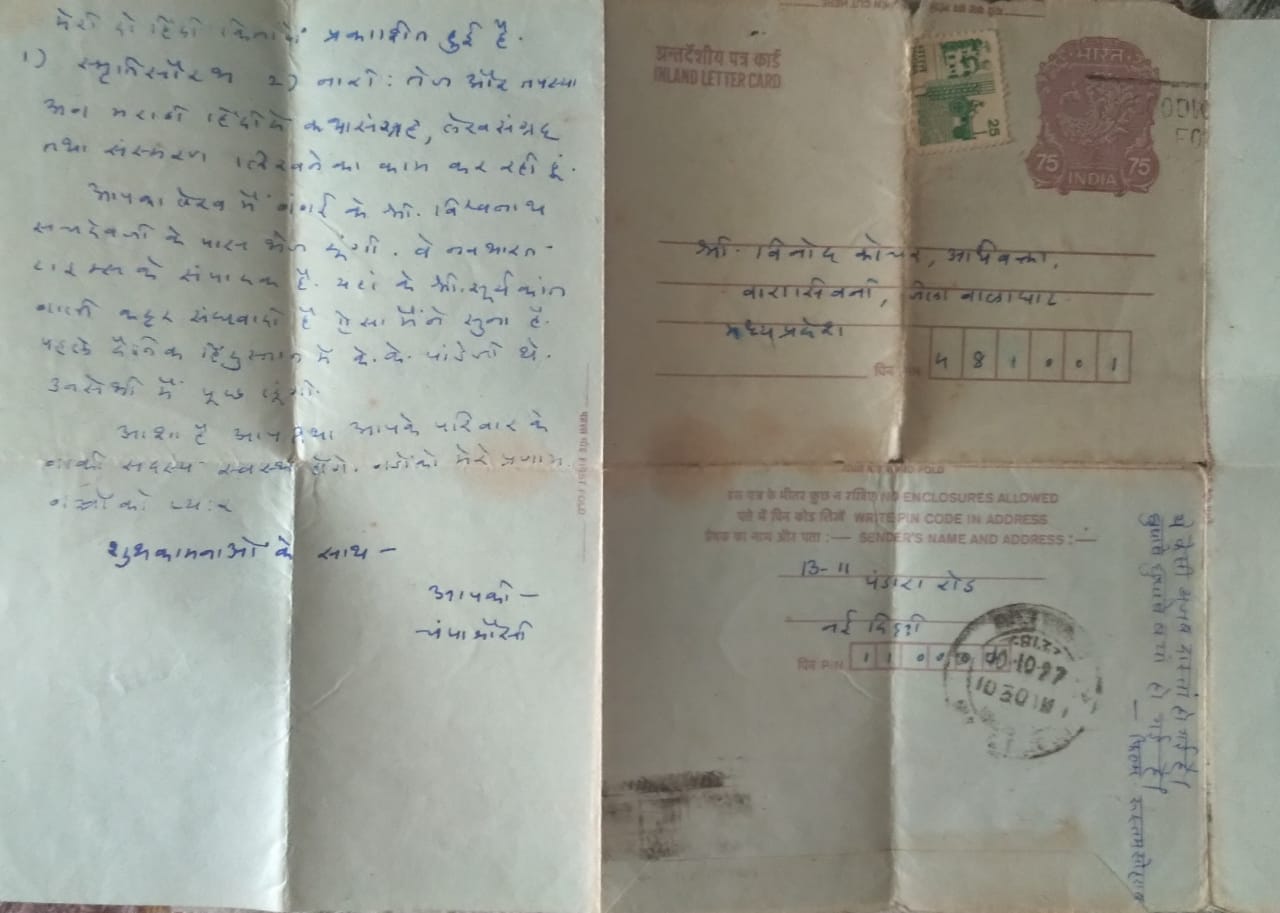 मेरी दो हिंदी किताबें प्रकाशित हुई है.
1) स्मृतिसौरभ 2) नारी: तेज और तपस्या
अब मराठी हिंदीमें कथासंग्रह, लेखसंग्रह
तथा संस्मरण लिखनेका काम कर रही हूं.
आपका लेख मैं बंबई के श्री. विश्वनाथ
सचदेवजी के पास भेज दूंगी. वे नवभारत
टाइम्स के संपादक है. यहां के श्री. सूर्यकांत
बाली कट्टर संघवादी है ऐसा मैंने सुना है.
पहले दैनिक हिंदुस्तान में के. के. पांडेजी थे.
उनसेभी मैं पूछ लूंगी.
आशा है आप तथा आपके परिवार के
बाकी सदस्य स्वस्थ होंगे. बडोंको मेरे प्रणाम.
बच्चोंको प्यार
शुभकामनाओं के साथ —
आपकी —
अन्तर्देशीय पत्र कार्ड
INLAND LETTER CARD
25
भारत
75 75
INDIA
श्री. विनोद कोचर, अधिवक्ता,
वारासिवनी, जिला बालाघाट
मध्यप्रदेश
पिन PIN 481001
SECOND FOLD
इस पत्र के भीतर कुछ न रखिए NO ENCLOSURES ALLOWED
पते में पिन कोड लिखें WRITE PIN CODE IN ADDRESS
प्रेषक का नाम और पता :— SENDER'S NAME AND ADDRESS :—
B-11 पंडारा रोड
नई दिल्ली
पिन PIN 11000
10-97
1030
पहला मोड़ FIRST FOLD